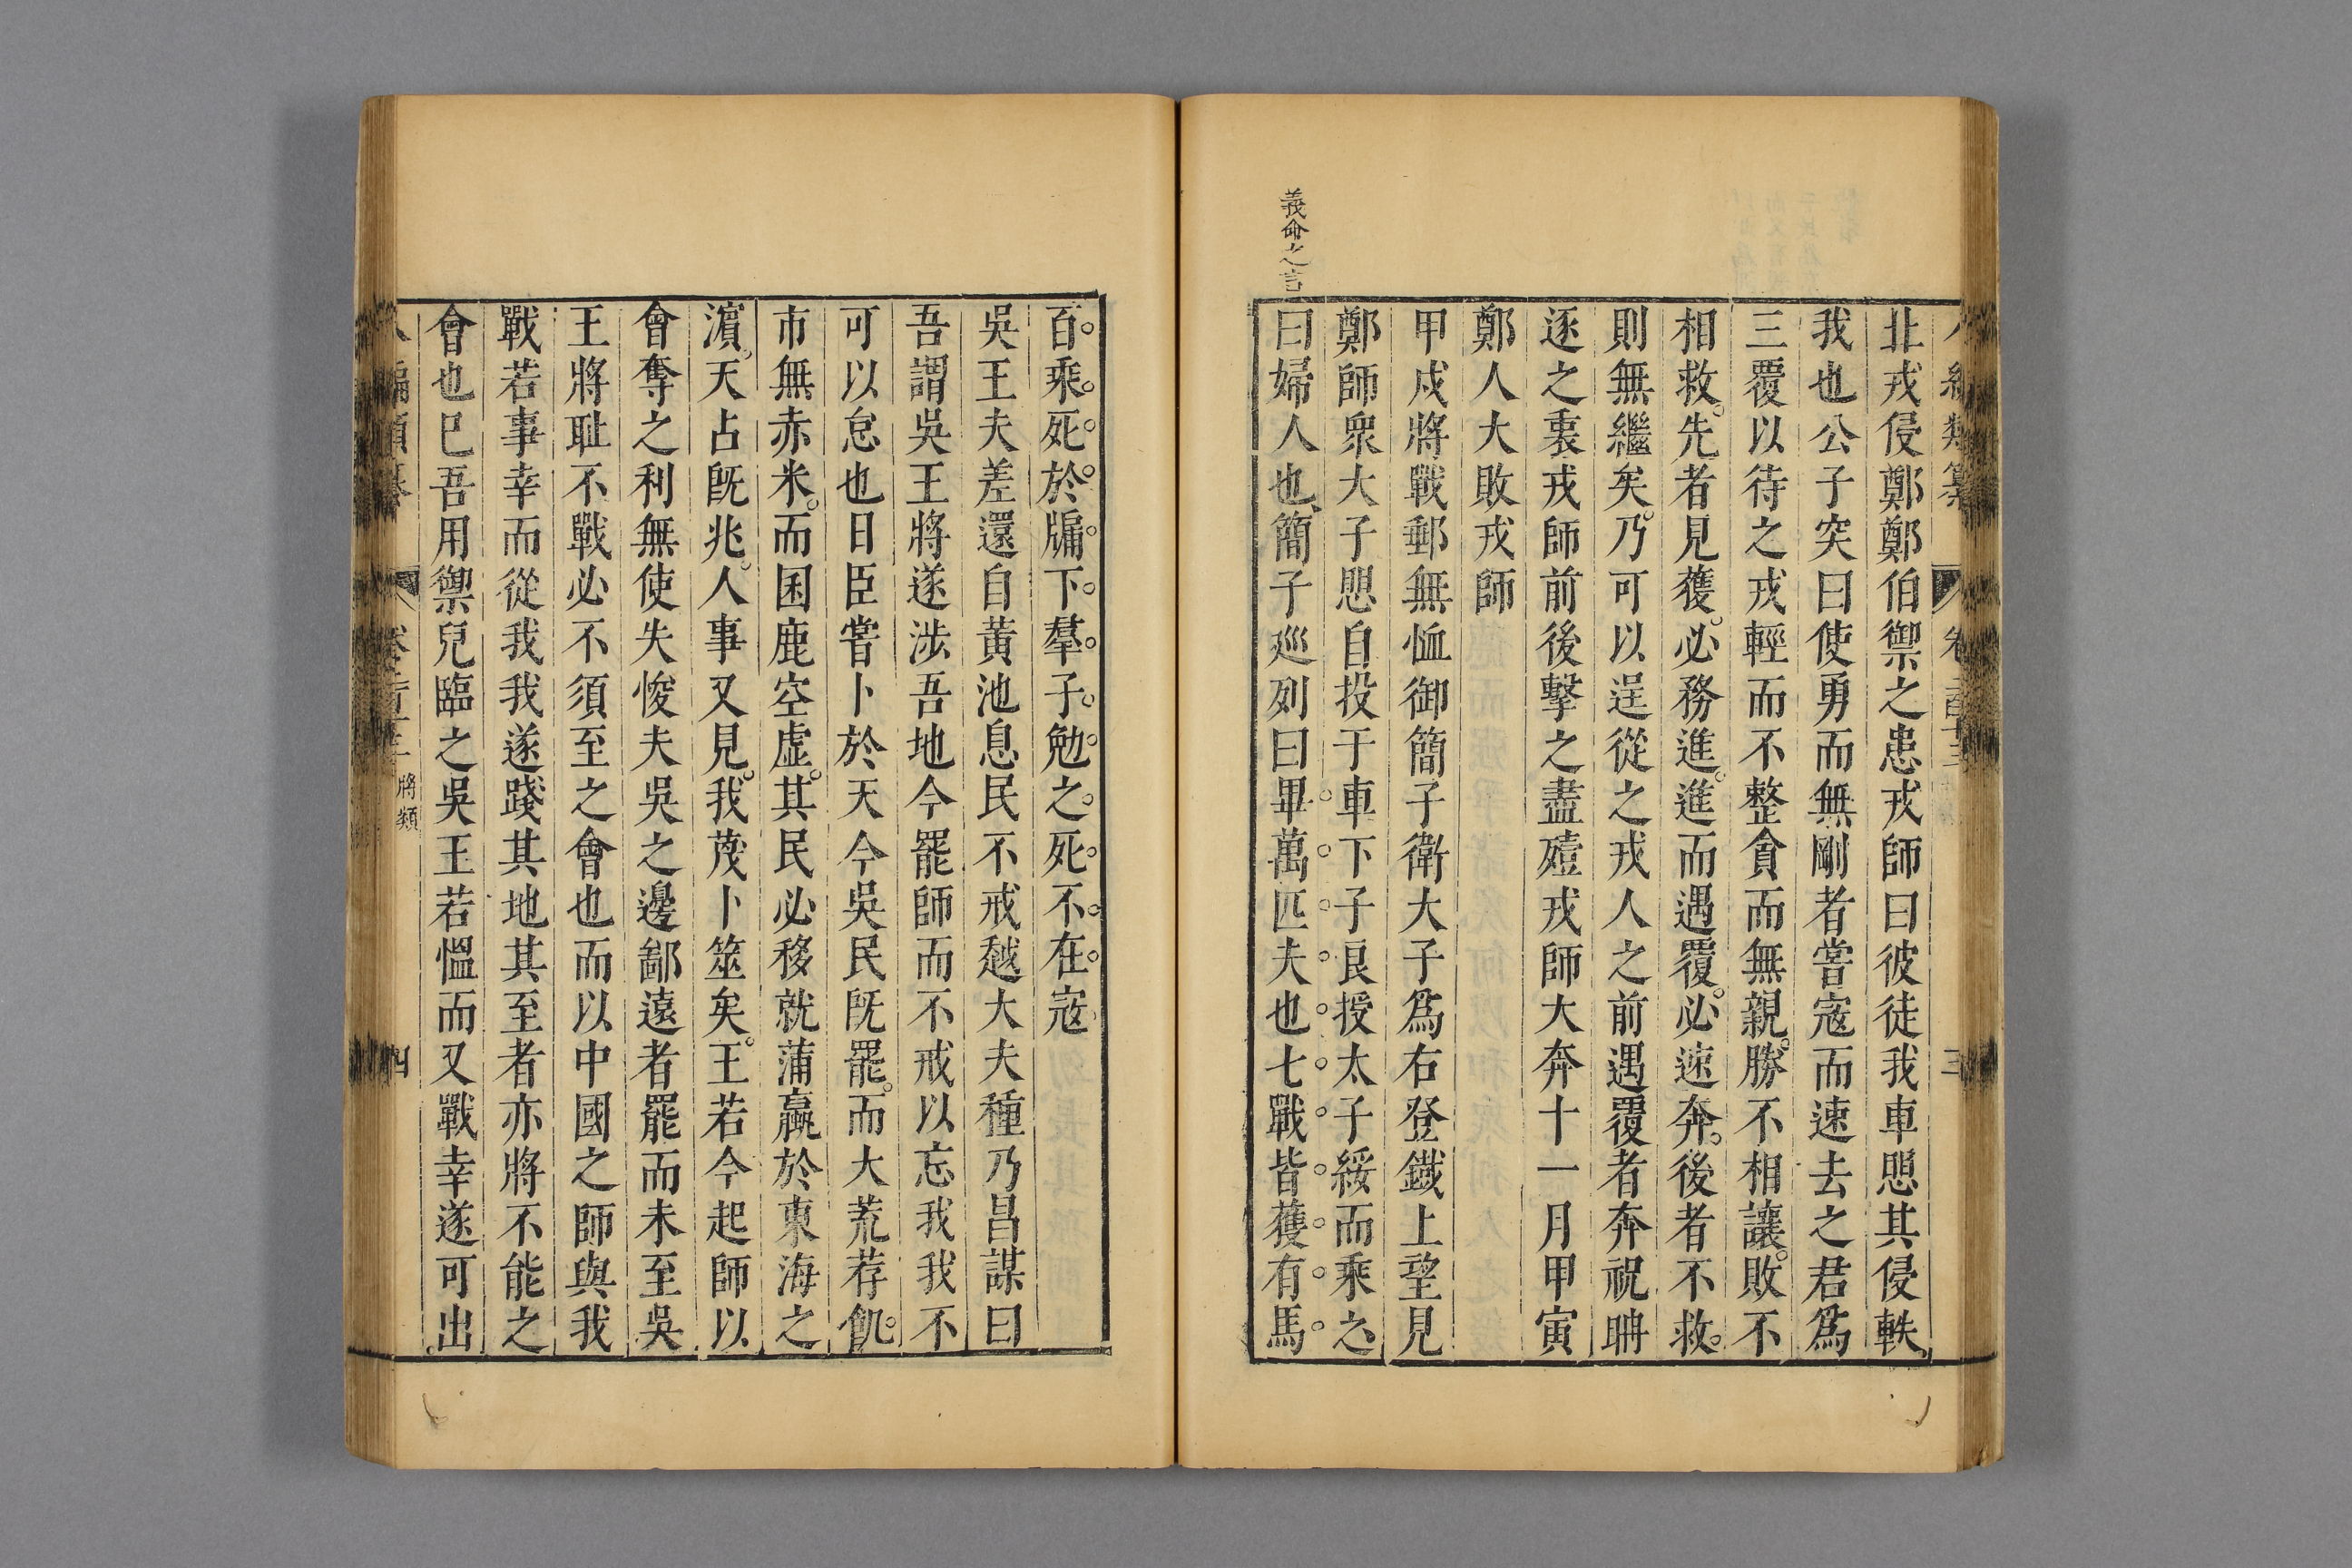 北戎侵鄭鄭伯禦之患戎師曰彼徒我車懼其侵軼
我也公子突曰使勇而無剛者嘗寇而速去之君爲
三覆以待之戎輕而不整貪而無親勝不相讓敗不
相救先者見獲必務進進而遇覆必速奔後者不救
則無繼矣乃可以逞從之戎人之前遇覆者奔祝聃
逐之衷戎師前後擊之盡殪戎師大奔十一月甲寅
鄭人大敗戎師
甲戌將戰郵無恤御簡子衛大子爲右登鐵上望見
鄭師衆大子懼自投于車下子良授太子綏而乘之
義命之言
曰婦人也簡子巡列曰畢萬匹夫也七戰皆獲有馬
百乘死於牖下羣子勉之死不在寇
吳王夫差還自黃池息民不戒越大夫種乃昌謀曰
吾謂吳王將遂涉吾地今罷師而不戒以忘我我不
可以怠也日臣嘗卜於天今吳民旣罷而大荒荐飢
市無赤米而囷鹿空虛其民必移就蒲蠃於東海之
濵天占旣兆人事又見我蔑卜筮矣王若今起師以
會奪之利無使失悛夫吳之邊鄙遠者罷而未至吳
王將耻不戰必不須至之會也而以中國之師與我
戰若事幸而從我我遂踐其地其至者亦將不能之
會也巳吾用禦兒臨之吳王若慍而又戰幸遂可出
將類
四